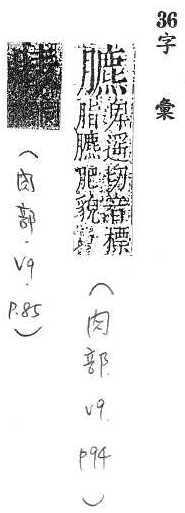 36
字彙
臕
卑遙切音標
脂臕肥貌
(肉部 v9. p94)
(肉部. v9. P.85)